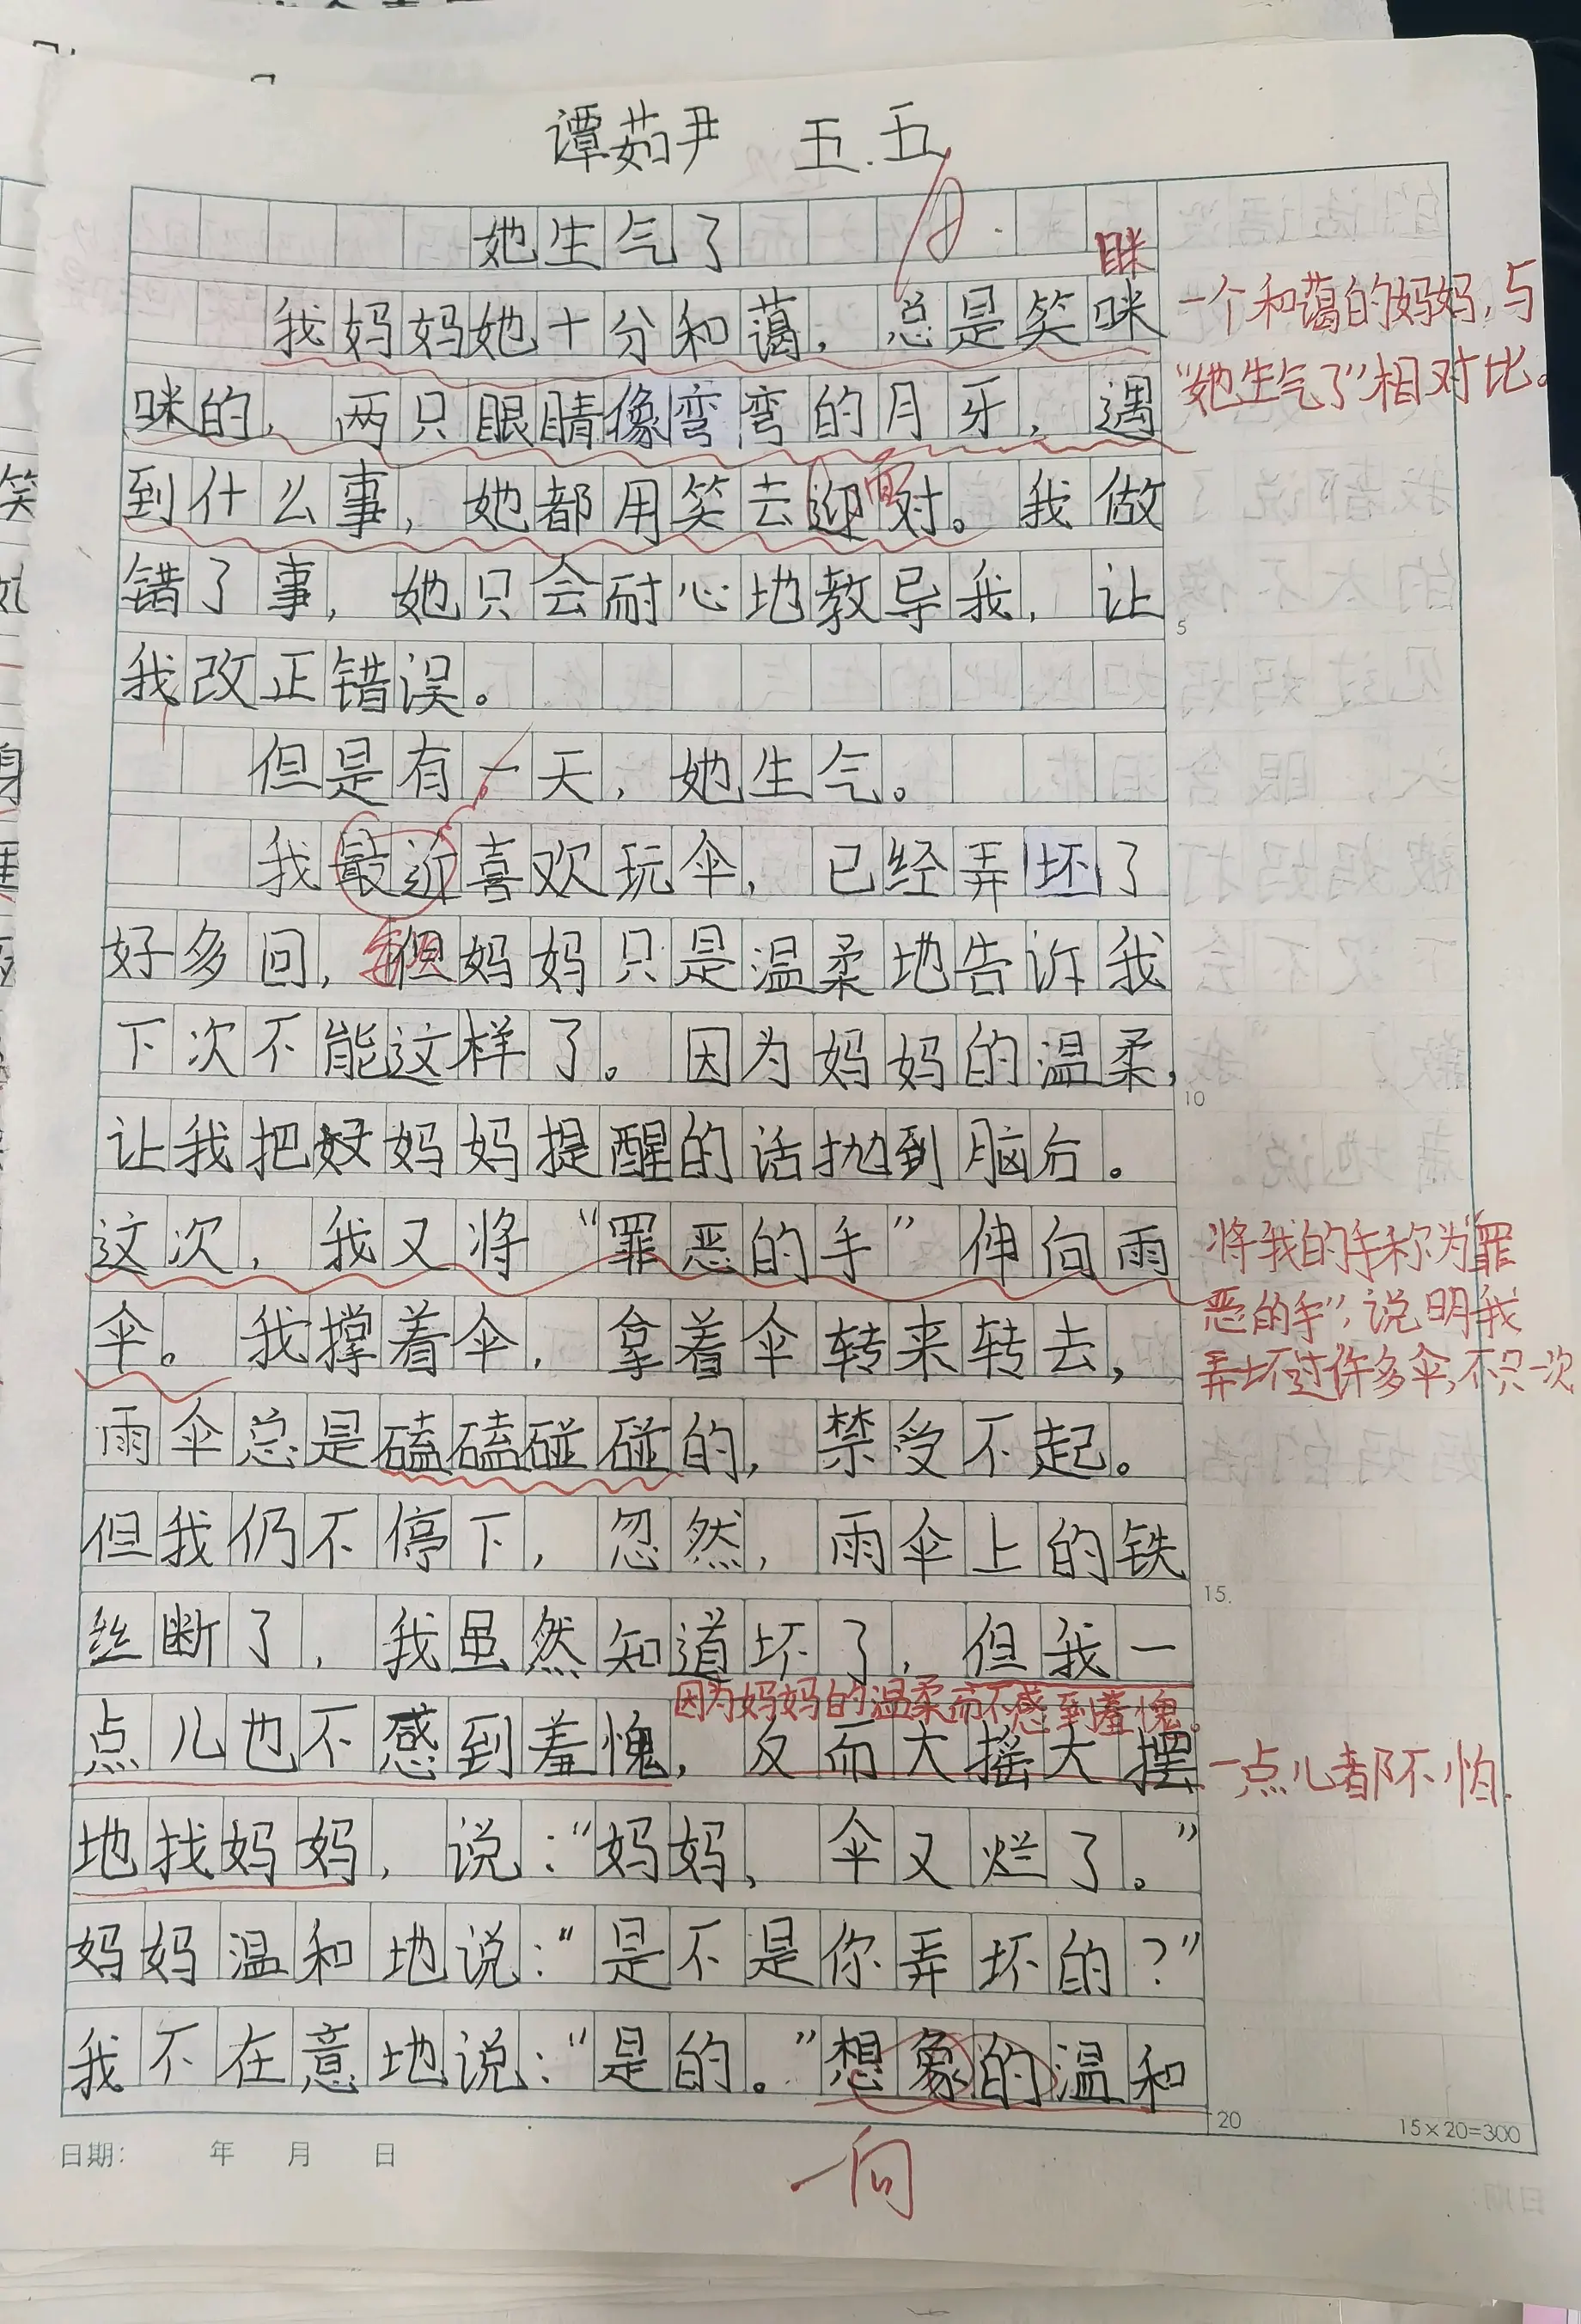 谭茹尹 五.五
她生气了
眯
我妈妈她十分和蔼，总是笑咪
一个和蔼的妈妈，与
“她生气了”相对比。
咪的，两只眼睛像弯弯的月牙，遇
到什么事，她都用笑去迎对。我做
面
错了事，她只会耐心地教导我，让
5
我改正错误。
但是有一天，她生气。
我最近喜欢玩伞，已经弄坏了
好多回，但妈妈只是温柔地告诉我
下次不能这样了。因为妈妈的温柔，
10
让我把妈妈提醒的话抛到脑后。
这次，我又将“罪恶的手”伸向雨
将我的手称为“罪
恶的手”，说明我
弄坏过许多伞，不只一次
伞。我撑着伞，拿着伞转来转去，
雨伞总是磕磕碰碰的，禁受不起。
但我仍不停下，忽然，雨伞上的铁
15
丝断了，我虽然知道坏了，但我一
因为妈妈的温柔而不感到羞愧。
点儿也不感到羞愧，反而大摇大摆
一点儿都不怕.
地找妈妈，说：“妈妈，伞又烂了。”
妈妈温和地说：“是不是你弄坏的？”
我不在意地说：“是的。”想象的温和
一向
20
15×20=300
日期： 年 月 日